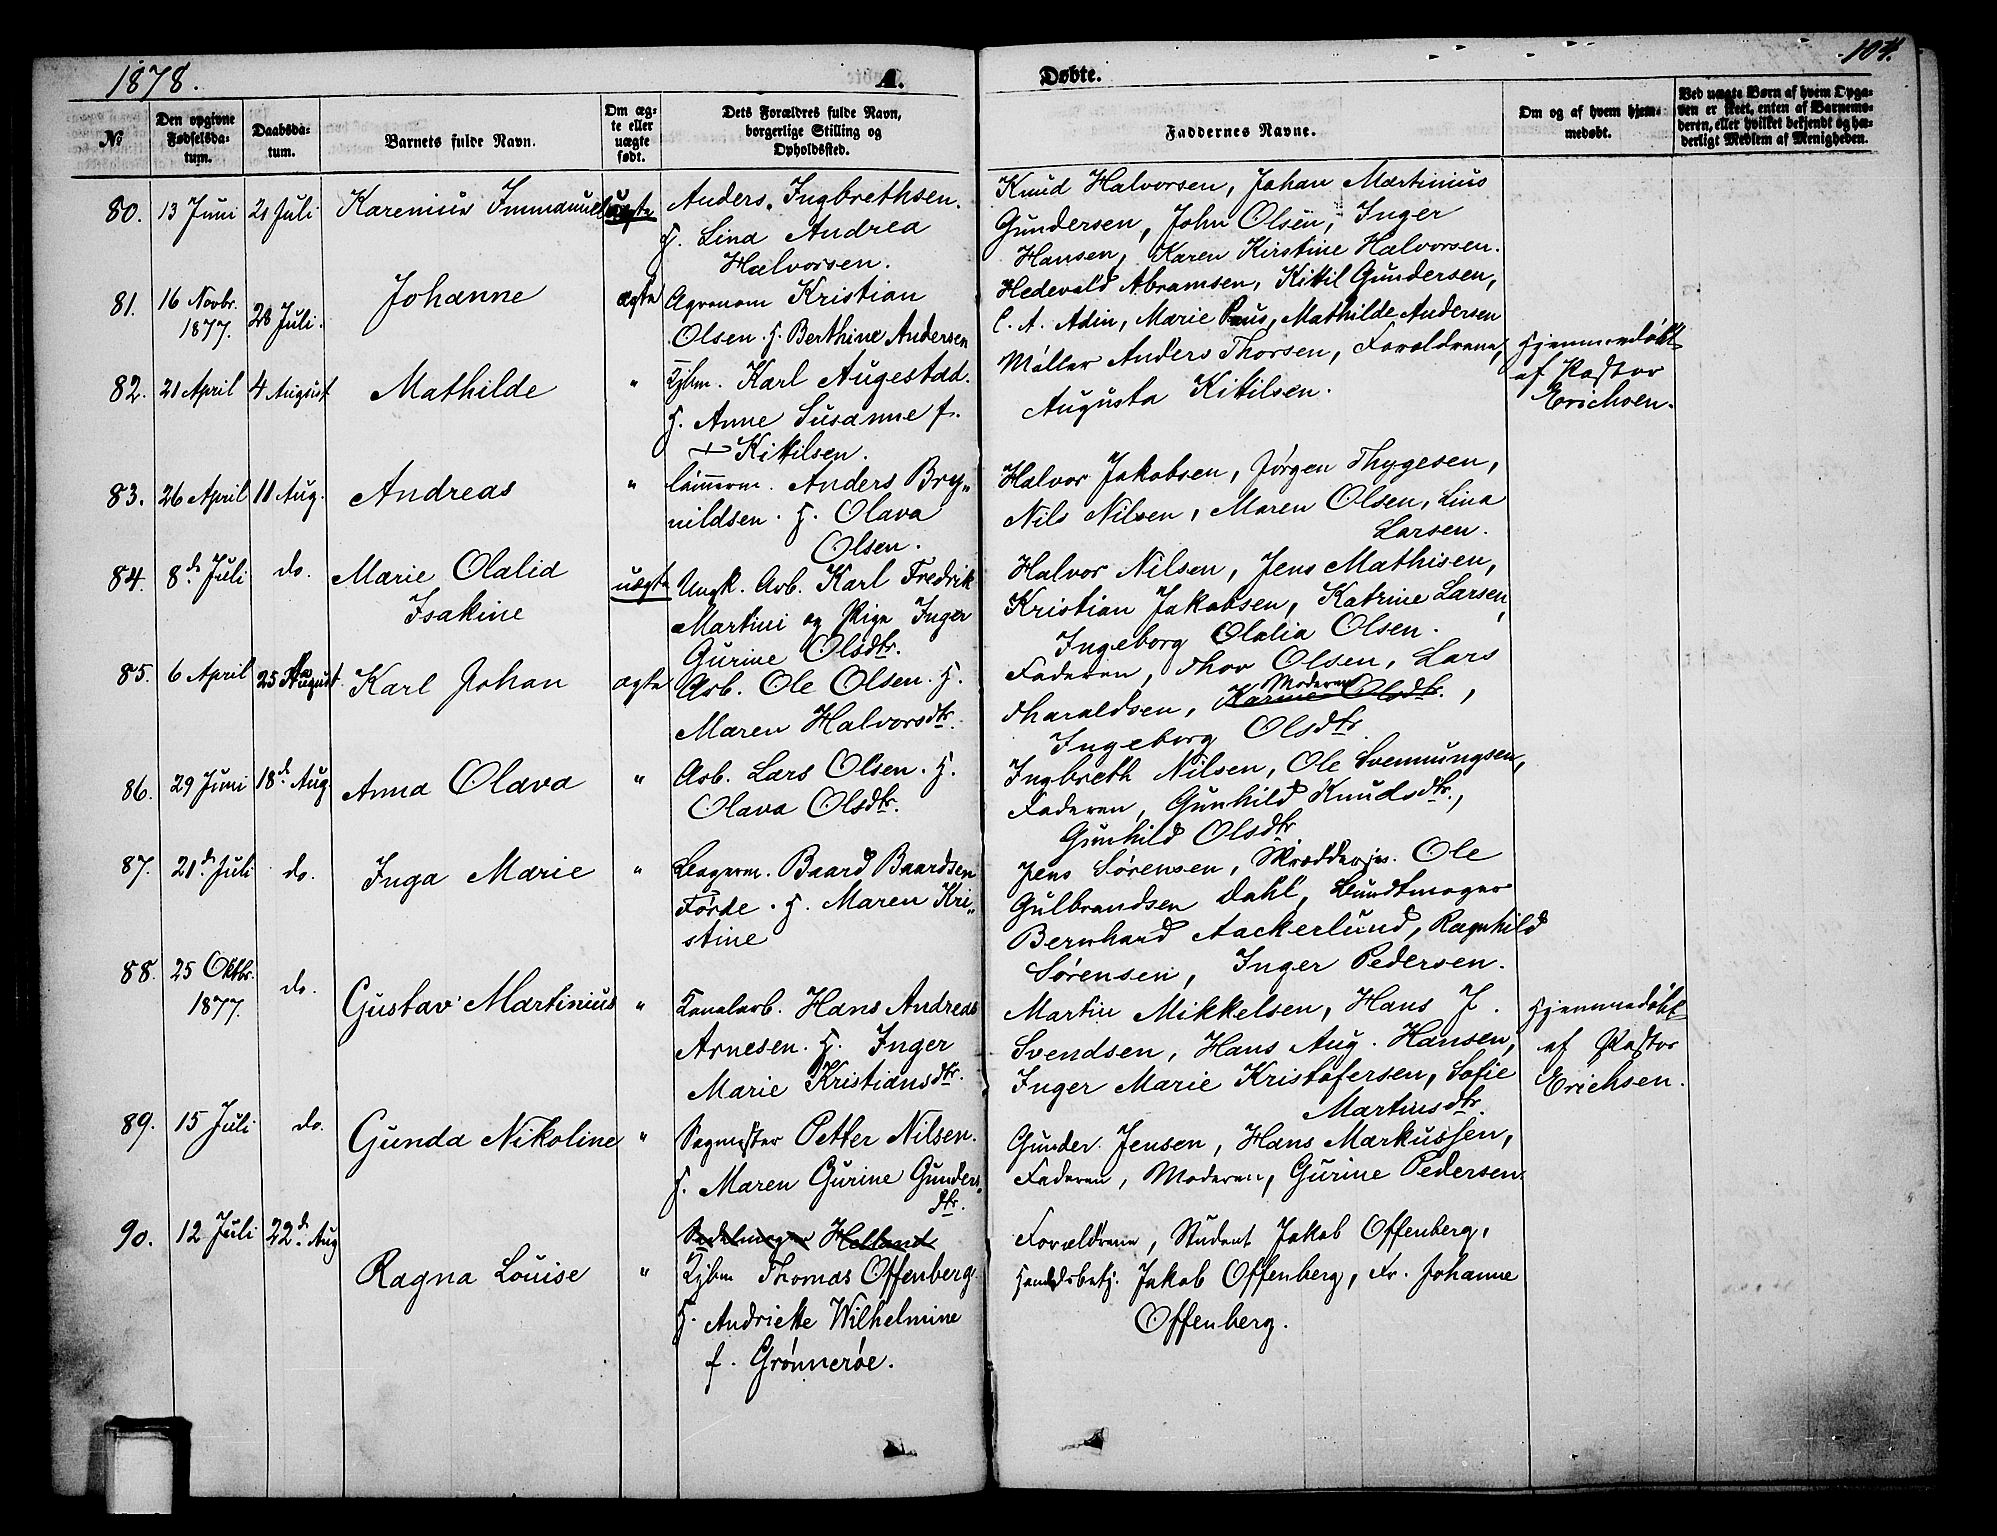 1878.
A.
Døbte.
104.
№
Den opgivne Fødselsda-tum.
Daabsda-tum.
Barnets fulde Navn.
Om æg-te eller uægte født.
Dets Forældres fulde Navn, borgerlige Stilling og Opholdssted.
Faddernes Navne.
Om og af hvem hjem-medøbt.
Ved uægte Børn af hvem Opga-ven er skeet, enten af Barnemo-deren, eller hvilket bekjendt og hæ-derligt Medlem af Menigheden.
80. 13 Juni 21 Juli Karenius Immanuel uægte
Anders Ingbrethsen.
H. Lina Andrea
Halvorsen.
Knud Halvorsen, Johan Martinius
Gundersen, John Olsen, Inger
Hansen, Karen Kirstine Halvorsen.
81. 16 Novbr. 1877. 28 Juli. Johanne ægte
Agronom Kristian
Olsen. H. Berthine Andersen
Hedevald Abramsen, Kittil Gundersen,
C. A. Adin, Marie Paus, Mathilde Andersen
82. 21 April 4 August Mathilde "
Kjbm. Karl Augestad.
H. Anne Susanne f.
Kittilsen.
Møller Anders Thorsen, Forældrene,
Augusta Kittilsen.
Hjemmedøbt
af Pastor
Erichsen.
83. 26 April 11 Aug. Andreas "
Anders Bry-
nildsen. H. Olava
Olsen.
Halvor Jakobsen, Jørgen Thygesen,
Nils Nilsen, Maren Olsen, Lina
Larsen.
84. 8d. Juli do. Marie Olalia
Isakine uægte
Ungk. Arb. Karl Fredrik
Martini og Pige Inger
Gurine Olsdtr.
Halvor Nilsen, Jens Mathisen,
Kristian Jakobsen, Katrine Larsen,
Ingeborg Olalia Olsen.
85. 6 April 25 August Karl Johan ægte
Arb. Ole Olsen. H.
Maren Halvorsdtr.
Faderen, Thor Olsen, Lars
Tharaldsen, Moderen Karine Olsdtr.,
Ingeborg Olsdtr
86. 29 Juni 18d. Aug. Anna Olava "
Arb. Lars Olsen. H.
Olava Olsdtr.
Ingbreth Nilsen, Ole Svennungsen,
Faderen, Gunhild Knudsdtr.,
Gunhild Olsdtr
87. 21d. Juli do. Inga Marie "
Bagerm. Baard Baardsen
Førde. H. Maren Kri-
stine
Jens Sørensen, Skræddersv. Ole
Gulbrandsen Dahl, Bundtmager
Bernhard Aackerlund, Ragnhild
Sørensen, Inger Pedersen.
88. 25 Oktbr. 1877. do. Gustav Martinius "
Kanalarb. Hans Andreas
Arnesen. H. Inger
Marie Kristiansdtr.
Martin Mikkelsen, Hans J.
Svendsen, Hans Aug. Hansen,
Inger Marie Kristofersen, Sofie
Martinsdtr.
Hjemmedøbt
af Pastor
Erichsen.
89. 15 Juli do. Gunda Nikoline "
Sagmester Petter Nilsen.
H. Maren Gurine Gunders
dtr.
Gunder Jensen, Hans Markussen,
Faderen, Moderen, Gurine Pedersen
90. 12 Juli 22d. Aug Ragna Louise "
Sadelmager Helland
Kjbm Thomas Offenberg
H. Andriette Wilhelmine
f. Grønnerøe.
Forældrene, Student Jakob Offenberg,
Handelsbetj. Jakob Offenberg, Fr. Johanne
Offenberg.